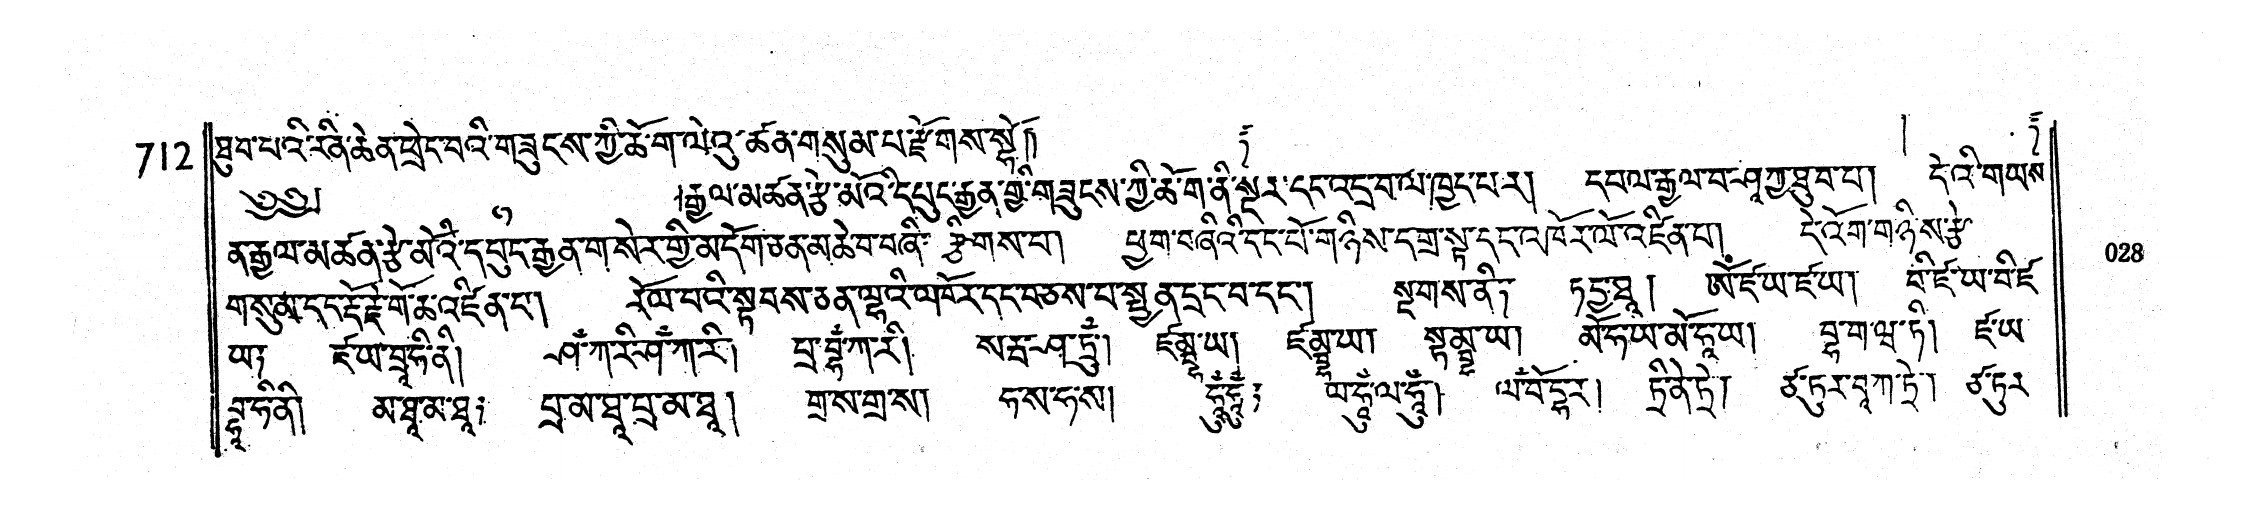 712 ཐུབ་པའི་རིན་ཆེན་ཕྲེང་བའི་གཟུངས་ཀྱི་ཆོ་ག་ལེའུ་ཚན་གསུམ་པ་རྫོགས་སྷོ།།
༄༅། །རྒྱལ་མཚན་རྩེ་མོའི་དཔུང་རྒྱན་གྱི་གཟུངས་ཀྱི་ཆོ་ག་ནི་སྔར་དང་འདྲ་བ་ལས་ཁྱད་པར། དཔལ་རྒྱལ་བ་ཤཱཀྱ་ཐུབ་པ། དེའི་གཡས
ན་རྒྱལ་མཚན་རྩེ་མོའི་དཔུང་རྒྱན་གསེར་གྱི་མདོག་ཅན་མཆེ་བ་བཞི་ གཙིགས་པ། ཕྱག་བཞིའི་དང་པོ་གཉིས་དགྲ་སྟ་དང་འཁོར་ལོ་འཛིན་པ། དེ་འོག་གཉིས་རྩེ་
གསུམ་དང་རྡོ་རྗེ་གོ་ཆ་འཛིན་པ། རོལ་པའི་སྟབས་ཅན་ལྷའི་འཁོར་དང་བཅས་པ་སྤྱན་དྲང་བ་དང་། སྔགས་ནི། ཏདྱ་ཐཱ། ཨོཾ་ཛ་ཡ་ཛ་ཡ། བི་ཛ་ཡ་བི་ཛ
ཡ། ཛ་ཡ་བཱ་ཧི་ནི། ཤཾ་ཀ་རི་ཤཾ་ཀ་རི། པྲ་བྷཾ་ཀ་རི། སརྦ་ཤ་ཏྲཱུཾ། ཛམྦྷ་ཡ། ཛམྦྷ་ཡ། སྟམྦྷ་ཡ། མོ་ཧ་ཡ་མོ་ཧ་ཡ། བྷ་ག་ཝ་ཏི། ཛ་ཡ
བཱ་ཧི་ནི། མ་ཐ་མ་ཐ། པྲ་མ་ཐ་པྲ་མ་ཐ། གྲ་ས་གྲ་ས། ཧ་ས་ཧ་ས། ཧཱུྃ་ཧཱུྃ། ལ་ཧཱུྃ་ལ་ཧཱུྃ། ལཾ་བོ་དྷ་ར། ཏྲི་ནེ་ཏྲེ། ཙ་ཏུར་བཱཀ་ཏྲེ། ཙ་ཏུར
028